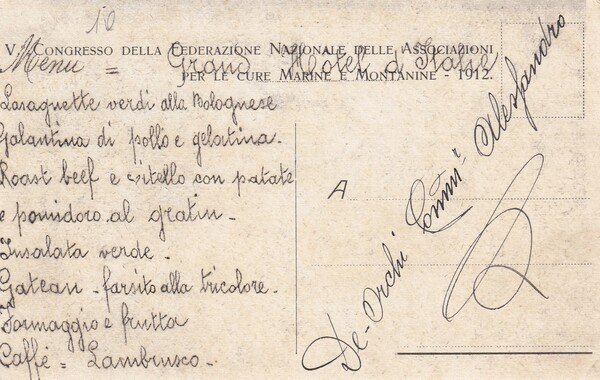 10
V CONGRESSO DELLA FEDERAZIONE NAZIONALE DELLE ASSOCIAZIONI
PER LE CURE MARINE E MONTANINE - 1912.
Menu = Grand Hotel d'Italie
Lasagnette verdi alla Bolognese
Galantina di pollo e gelatina.
Roast beef e vitello con patate
e pomidoro al gratin -
Insalata verde -
Gateau - farsito alla tricolore.
Formaggio e frutta
Caffè = Lambrusco -
A
De-Orchi Alessandro